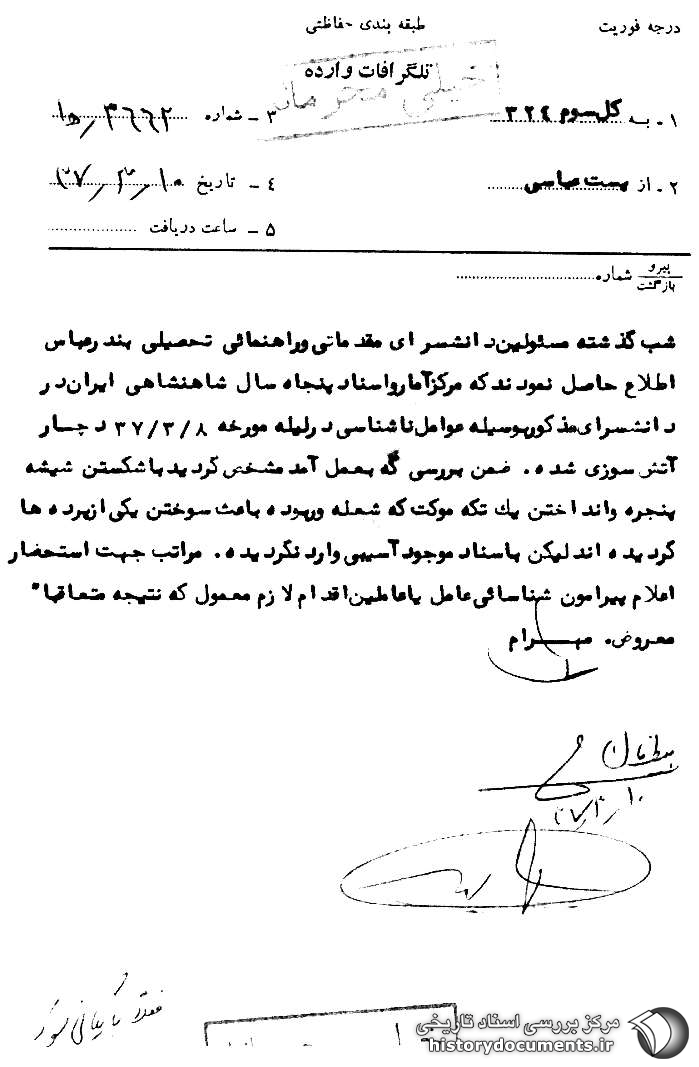 درجه فوریت
طبقه بندی حفاظتی
تلگرافات وارده
خیلی محرمانه
۱ - به کل سوم ۳۲۴
۳ - شماره ۳۶۶۲/ﻫ۱
۲ - از بست عباسی
۴ - تاریخ ۳۷/۳/۱۰
۵ - ساعت دریافت
پیرو
بازگشت
شماره
شب گذشته مسئولین دانشسرای مقدماتی وراهنمائی تحصیلی بندرعباس
اطلاع حاصل نمودند که مرکزآمارواسناد پنجاه سال شاهنشاهی ایران در
دانشسرای مذکوربوسیله عوامل ناشناسی درلیله مورخه ۳۷/۳/۸ دچار
آتش سوزی شده . ضمن بررسی گه بعمل آمد مشخص گردید باشکستن شیشه
پنجره وانداختن یك تکه موکت که شعله وربوده باعث سوختن یکی ازپرده ها
گردیده اند لیکن باسناد موجود آسیبی وارد نگردیده . مراتب جهت استحضار
اعلام پیرامون شناسائی عامل یاعاملین اقدام لازم معمول که نتیجه متعاقبا"
معروض. مهرام
۳۷/۳/۱۰
فعلا بایگانی شود
مرکز بررسی اسناد تاریخی
historydocuments.ir